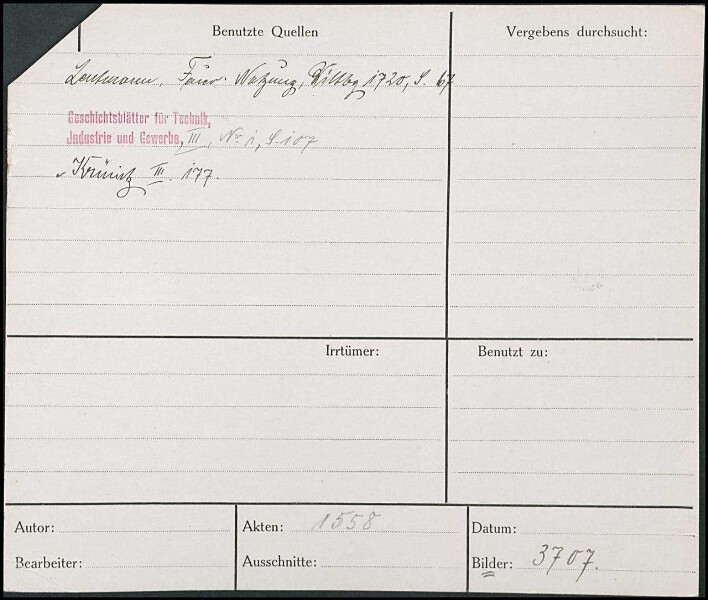 Benutzte Quellen
Vergebens durchsucht:
Leutmann, Feuer-Nutzung, Wittbg 1720, S. 67
Geschichtsblätter für Technik,
Industrie und Gewerbe, III, No 1, S. 107
Krünitz III. 177.
Irrtümer:
Benutzt zu:
Autor:
Akten: 1558
Datum:
Bearbeiter:
Ausschnitte:
Bilder: 3707.